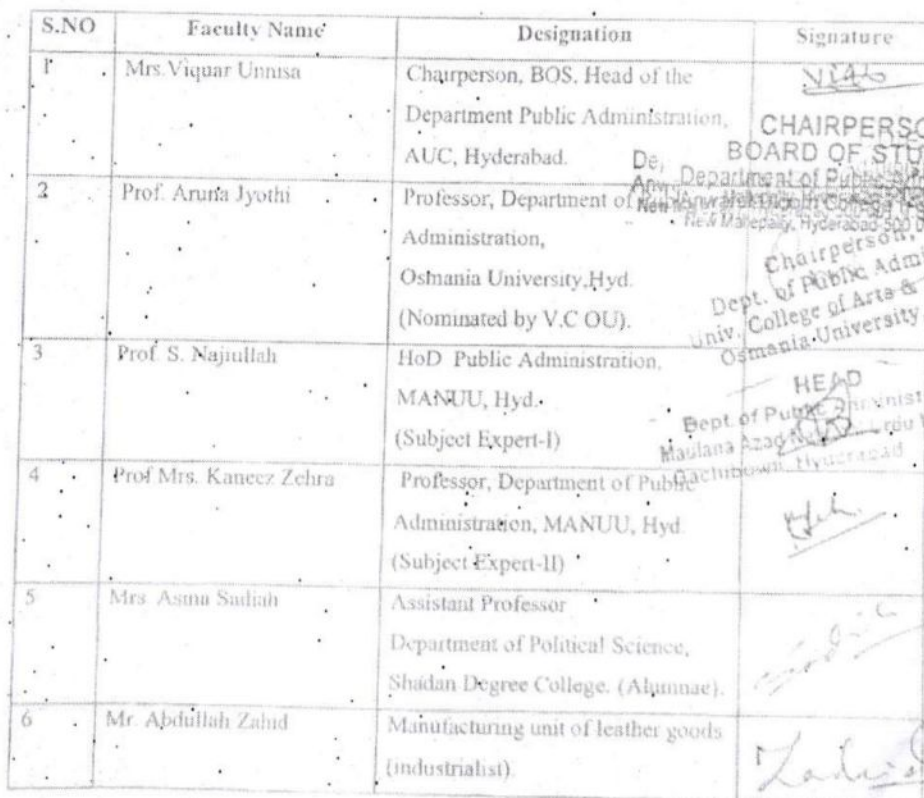 S.NO Faculty Name Designation Signature
1 Mrs.Viquar Unnisa Chairperson, BOS, Head of the
Department Public Administration,
AUC, Hyderabad.
CHAIRPERSO
BOARD OF STU
Department of Public
New Mallepally, Hyderabad-500 0
2 Prof. Aruna Jyothi Professor, Department of
Administration,
Osmania University,Hyd.
(Nominated by V.C OU).
Chairperson,
Dept. of Public Admi
Univ. College of Arts &
Osmania University
3 Prof. S. Najiullah HoD Public Administration,
MANUU, Hyd.
(Subject Expert-I)
HEAD
Dept. of Public Administ
Maulana Azad Urdu
Gachibowli, Hyderabad
4 Prof Mrs. Kaneez Zehra Professor, Department of Public
Administration, MANUU, Hyd.
(Subject Expert-II)
5 Mrs. Asma Sadiah Assistant Professor
Department of Political Science,
Shadan Degree College. (Alumnae).
6 Mr. Abdullah Zahid Manufacturing unit of leather goods
(industrialist).